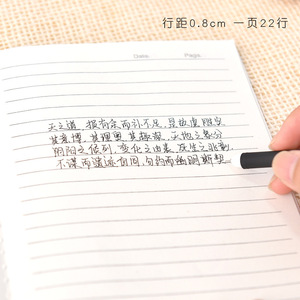 行距0.8cm 一页22行
Date. Page.
天之道,损有余而补不足,是故虚胜实
其意博,其理奥,其趣深,天地之象分
阴阳之候列,变化之由表,死生之兆彰
不谋而遗迹自同,勿约而幽明斯契